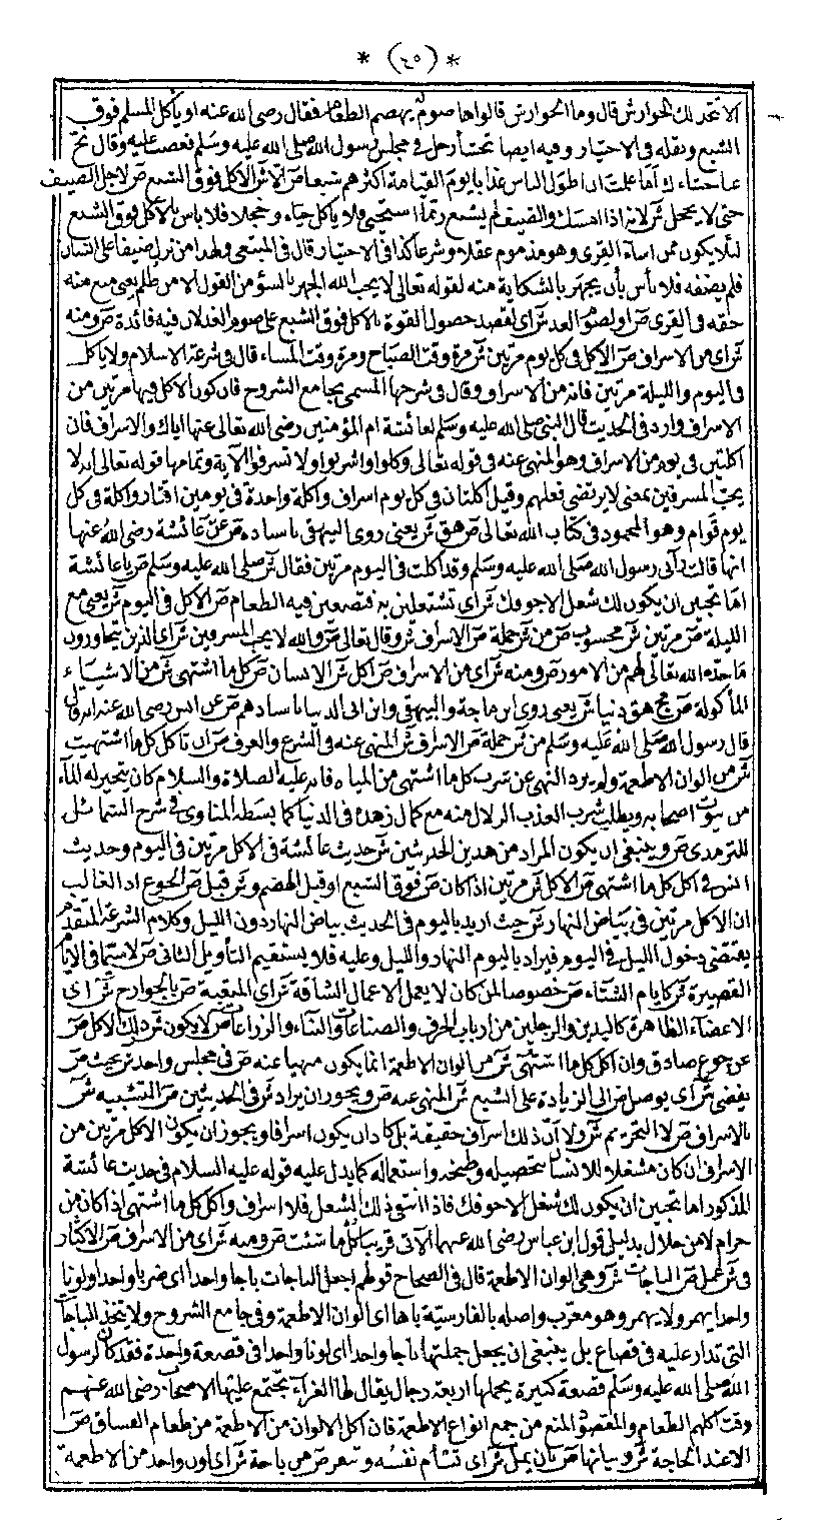 * (٤٥) *
الا نتخذ لك الجوارش قال وما الجوارش قالوا هاضوم يهضم الطعام فقال رضى الله عنه او يأكل المسلم فوق
الشبع ونقله فى الاختيار وفيه ايضا تجشأ رجل فى مجلس رسول الله صلى الله عليه وسلم فغضب عليه وقال نح
عنا جشاءك أما علمت ان اطول الناس عذابا يوم القيامة اكثرهم شبعا ص الا ش الاكل فوق الشبع ص لاجل الضيف
حتى لا يخجل ش لانه اذا امسك والضيف لم يشبع ربما استحيى فلا يأكل حياء وخجلا فلا بأس بالاكل فوق الشبع
لئلا يكون ممن اساء القرى وهو مذموم عقلا وشرعا كذا فى الاختيار قال فى المبتغى ولهذا من نزل ضيفا على انسان
فلم يضفه فلا بأس بأن يجهر بالشكاية منه لقوله تعالى لا يحب الله الجهر بالسوء من القول الا من ظلم يعنى منع منه
حقه فى القرى ص او لصوم الغد ش اى لقصد حصول القوة بالاكل فوق الشبع على صوم الغد لان فيه فائدة ص ومنه
ش اى من الاسراف ص الاكل فى كل يوم مرتين ش مرة وقت الصباح ومرة وقت المساء قال فى شرعة الاسلام ولا يأكل
فى اليوم والليلة مرتين فانه من الاسراف وقال فى شرحها المسمى بجامع الشروح فان كون الاكل فيها مرتين من
الاسراف وارد فى الحديث قال النبى صلى الله عليه وسلم لعائشة ام المؤمنين رضى الله تعالى عنها اياك والاسراف فان
اكلتين فى يوم من الاسراف وهو المنهى عنه فى قوله تعالى وكلوا واشربوا ولا تسرفوا الآية وتمامها قوله تعالى انه لا
يحب المسرفين بمعنى لا يرتضى فعلهم وقيل اكلتان فى كل يوم اسراف واكلة واحدة فى يومين اقتار واكلة فى كل
يوم قوام وهو المحمود فى كتاب الله تعالى ص هق ش يعنى روى البيهقى باسناده ص عن عائشة رضى الله عنها
انها قالت رآنى رسول الله صلى الله عليه وسلم وقد اكلت فى اليوم مرتين فقال ش صلى الله عليه وسلم ص يا عائشة
اما تحبين ان يكون لك شغل الا جوفك ش اى تشتغلين به فتضعين فيه الطعام ص الاكل فى اليوم ش يعنى مع
الليلة ص مرتين ش محسوب ص من ش جملة ص الاسراف ش وقال تعالى ص والله لا يحب المسرفين ش اى الذين يتجاوزون
ما حده الله تعالى لهم من الامور ص ومنه ش اى من الاسراف ص اكل ش الانسان ص كل ما اشتهى ش من الاشياء
المأكولة ص مج هق دنيا ش يعنى روى ابن ماجة والبيهقى وابن ابى الدنيا باسنادهم ص عن انس رضى الله عنه انه قال
قال رسول الله صلى الله عليه وسلم من ش جملة ص الاسراف ش المنهى عنه فى الشرع والعرف ص ان تأكل كل ما اشتهيت
ش من الوان الاطعمة ولم يرد النهى عن شرب كل ما اشتهى من المياه فانه عليه الصلاة والسلام كان يتخير له الماء
من بيوت اصحابه ويطلب شرب العذب الزلال منه مع كمال زهده فى الدنيا كما بسطه المناوى فى شرح الشمائل
للترمذى ص وينبغى ان يكون المراد من هذين الحديثين ش حديث عائشة فى الاكل مرتين فى اليوم وحديث
انس فى اكل كل ما اشتهى ص الاكل ش مرتين اذا كان ص فوق الشبع او قبل الهضم و ش قبل ص الجوع اذ الغالب
ان الاكل مرتين فى بياض النهار ش حيث اريد باليوم فى الحديث بياض النهار دون الليل وكلام الشرعة المتقدم
يقتضى دخول الليل فى اليوم فيراد باليوم النهار والليل وعليه فلا يستقيم التأويل الثانى ص لا سيما فى الايام
القصيرة ش كايام الشتاء ص خصوصا لمن كان لا يعمل الاعمال الشاقة ش اى المتعبة ص بالجوارح ش اى
الاعضاء الظاهرة كاليدين والرجلين من ارباب الحرف والصناعات والبناء والزراعات ص لا يكون ش ذلك الاكل ص
عن جوع صادق وان اكل كل ما اشتهى ش من الوان الاطعمة انما يكون منهيا عنه ص فى مجلس واحد ش بحيث ص
يفضى ش اى يوصل ص الى الزيادة على الشبع ش المنهى عنه ص ويجوز ان يراد ش فى الحديثين ص التشبيه ش
بالاسراف ص لا التحريم ش ولا ان ذلك اسراف حقيقة بل كاد ان يكون اسرافا ويجوز ان يكون الاكل مرتين من
الاسراف ان كان مشغلا للانسان بتحصيله وطبخه واستعماله كما يدل عليه قوله عليه السلام فى حديث عائشة
المذكور اما تحبين ان يكون لك شغل الا جوفك فاذا انتفى ذلك الشغل فلا اسراف واكل كل ما اشتهى اذا كان من
حرام لا من حلال بدليل قول ابن عباس رضى الله عنهما الآتى قريبا كل ما شئت ص ومنه ش اى من الاسراف ص الاكثار
فى ش عمل ص الباجات ش وهى الوان الاطعمة قال فى الصحاح قولهم اجعل الباجات باجا واحدا اى ضربا واحدا ولونا
واحدا يهمز ولا يهمز وهو معرب واصله بالفارسية باها اى الوان الاطعمة وفى جامع الشروح ولا يتخذ الباجات
التى تدار عليه فى قصاع بل ينبغى ان يجعل جملتها باجا واحدا اى لونا واحدا فى قصعة واحدة فقد كان لرسول
الله صلى الله عليه وسلم قصعة كبيرة يحملها اربعة رجال يقال لها الغراء يجتمع عليها الاصحاب رضى الله عنهم
وقت اكلهم الطعام والمقصود المنع من جمع انواع الاطعمة فان اكل الالوان من الاطعمة من طعام الفساق ص
الا عند الحاجة ش وبيانها ص بان يمل ش اى تسأم نفسه وتنفر ص من باجة ش اى لون واحد من الاطعمة